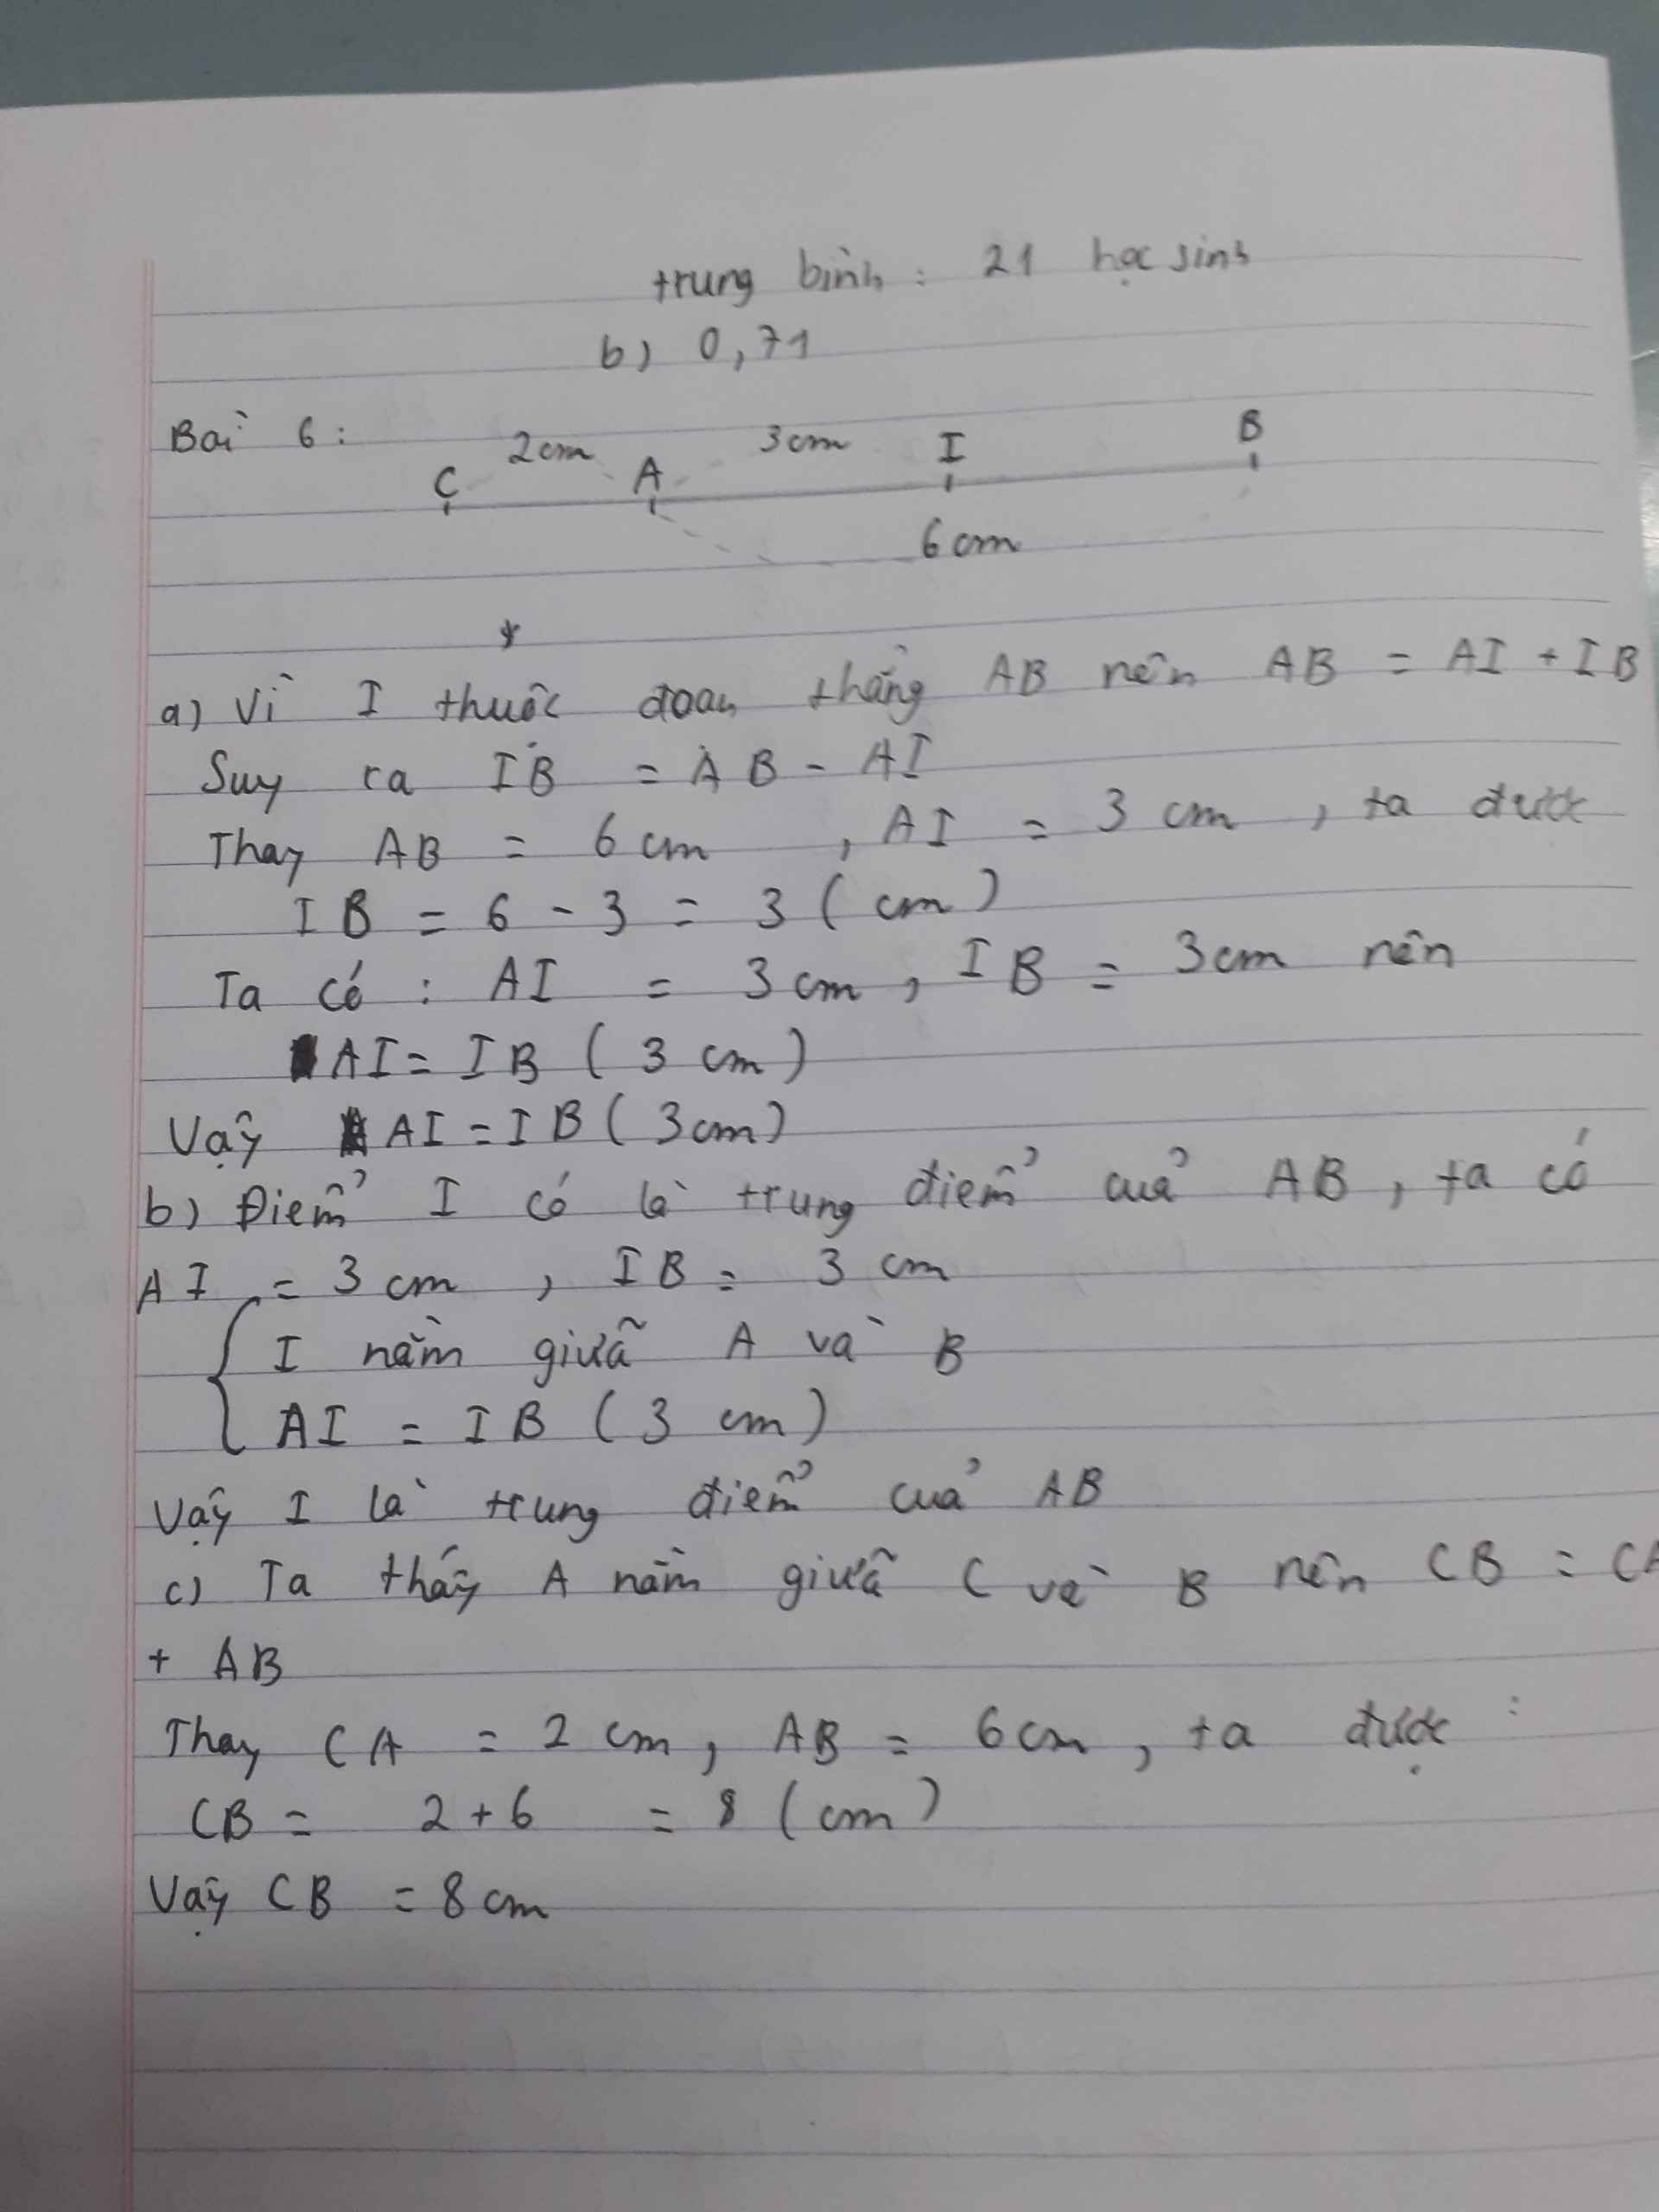 trung bình : 21 học sinh
b) 0,71
Bài 6 :
C 2cm A 3cm I B
6cm
a) Vì I thuộc đoạn thẳng AB nên AB = AI + IB
Suy ra IB = AB - AI
Thay AB = 6 cm , AI = 3 cm , ta được
IB = 6 - 3 = 3 ( cm )
Ta có : AI = 3 cm , IB = 3cm nên
AI = IB ( 3 cm )
Vậy AI = IB ( 3cm )
b) Điểm I có là trung điểm của AB , ta có
AI = 3 cm , IB = 3 cm
{ I nằm giữa A và B
AI = IB ( 3 cm )
Vậy I là trung điểm của AB
c) Ta thấy A nằm giữa C và B nên CB = CA
+ AB
Thay CA = 2 cm , AB = 6cm , ta được :
CB = 2 + 6 = 8 ( cm )
Vậy CB = 8 cm